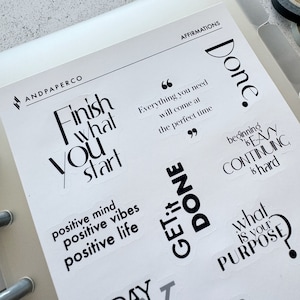 ANDPAPERCO
AFFIRMATIONS
Finish
what
you
start
“
Everything you need
will come at
the perfect time
”
Done.
beginning
is EASY
CONTINUING
is hard
positive mind
positive vibes
positive life
GET it
DONE
what
is your
PURPOSE?
DAY